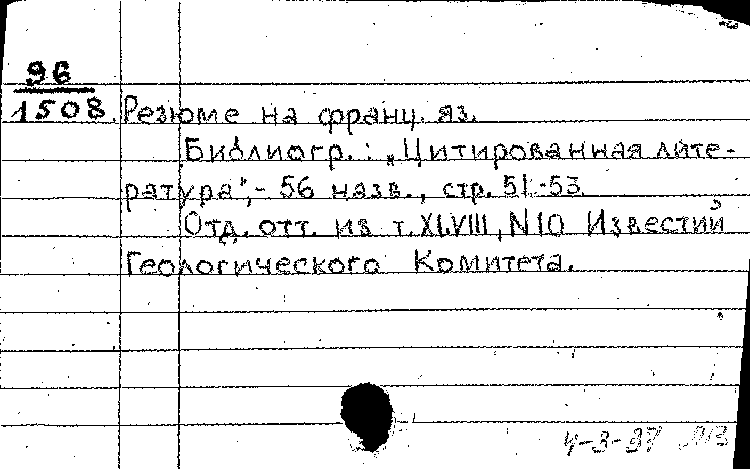 96
1508. Резюме на франц. яз.
Библиогр.: „Цитированная лите-
ратура",- 56 назв., стр. 51-53.
Отд. отт. из т. XLVIII, N10 Известий
Геологического Комитета.
4-3-37